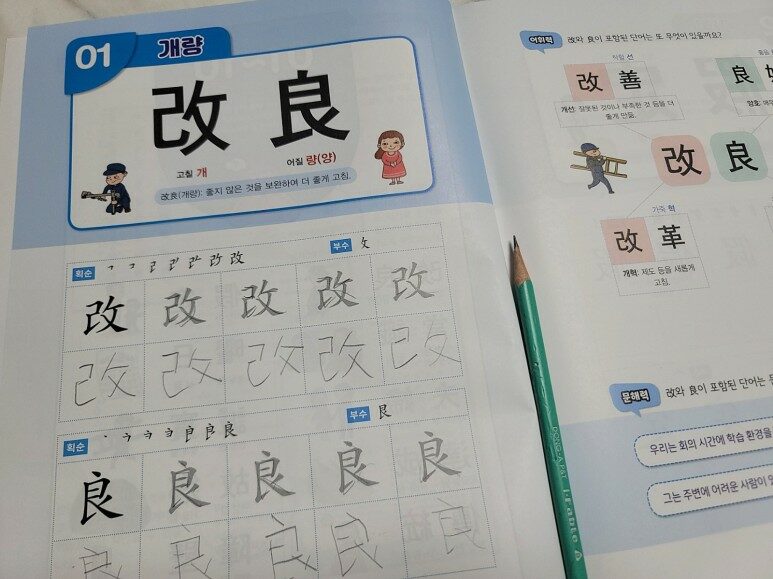 01 개량
改 良
고칠 개 어질 량(양)
改良(개량): 좋지 않은 것을 보완하여 더 좋게 고침.
획순
부수 攵
改 改 改 改 改
改 改 改 改 改
획순
부수 艮
良 良 良 良 良
良 良 良 良 良
어휘력 改와 良이 포함된 단어는 또 무엇이 있을까요?
착할 선
改 善
良
개선: 잘못된 것이나 부족한 것 등을 더
좋게 만듦.
양호:
改 良
가죽 혁
改 革
개혁: 제도 등을 새롭게
고침.
문해력 改와 良이 포함된 단어는
우리는 회의 시간에 학습 환경을
그는 주변에 어려운 사람이
DONG-A